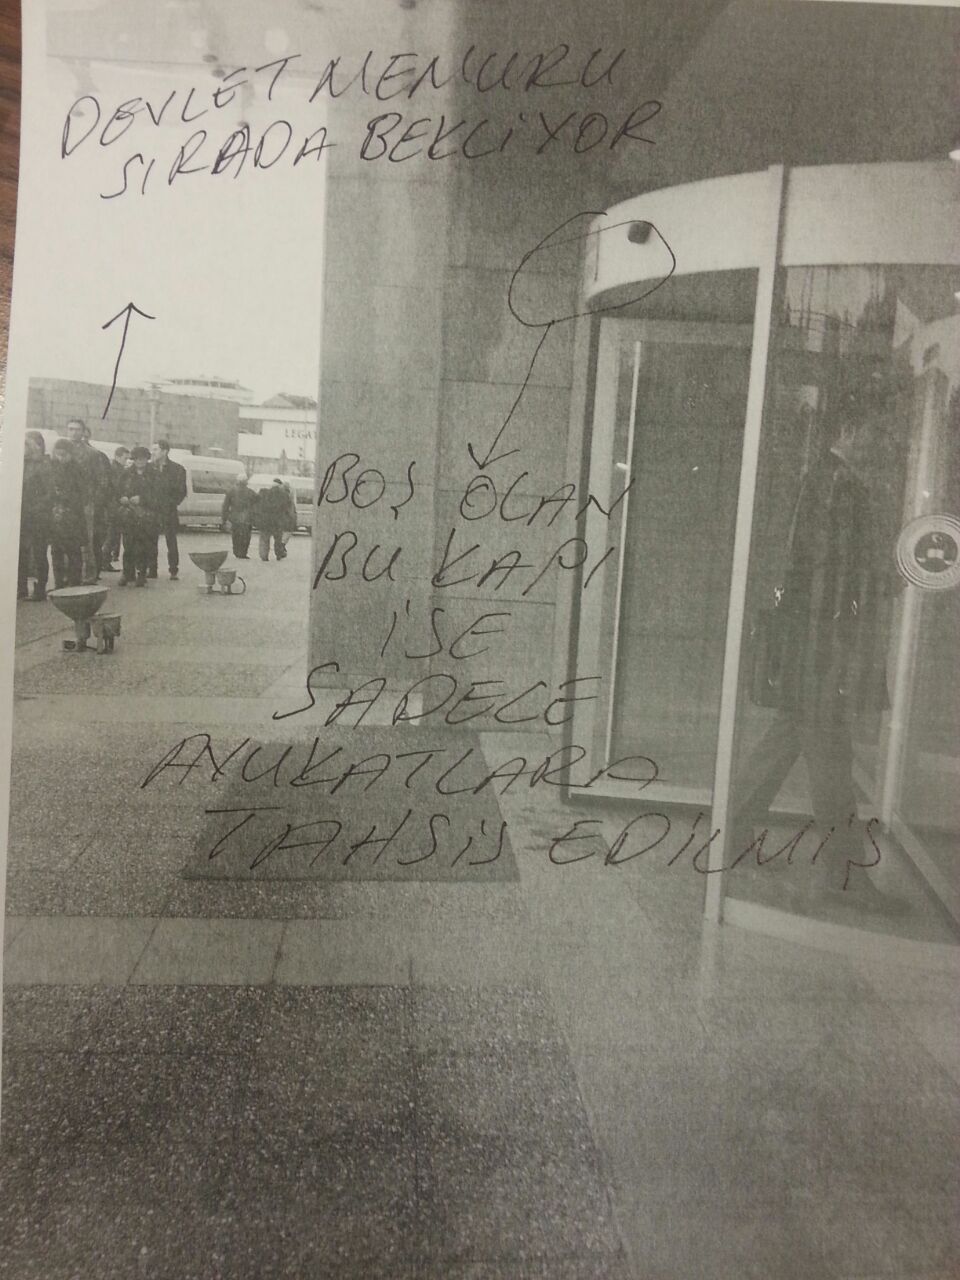 DEVLET MEMURU
SIRADA BEKLİYOR
LEGA
BOŞ OLAN
BU KAPI
İSE
SADECE
AVUKATLARA
TAHSİS EDİLMİŞ